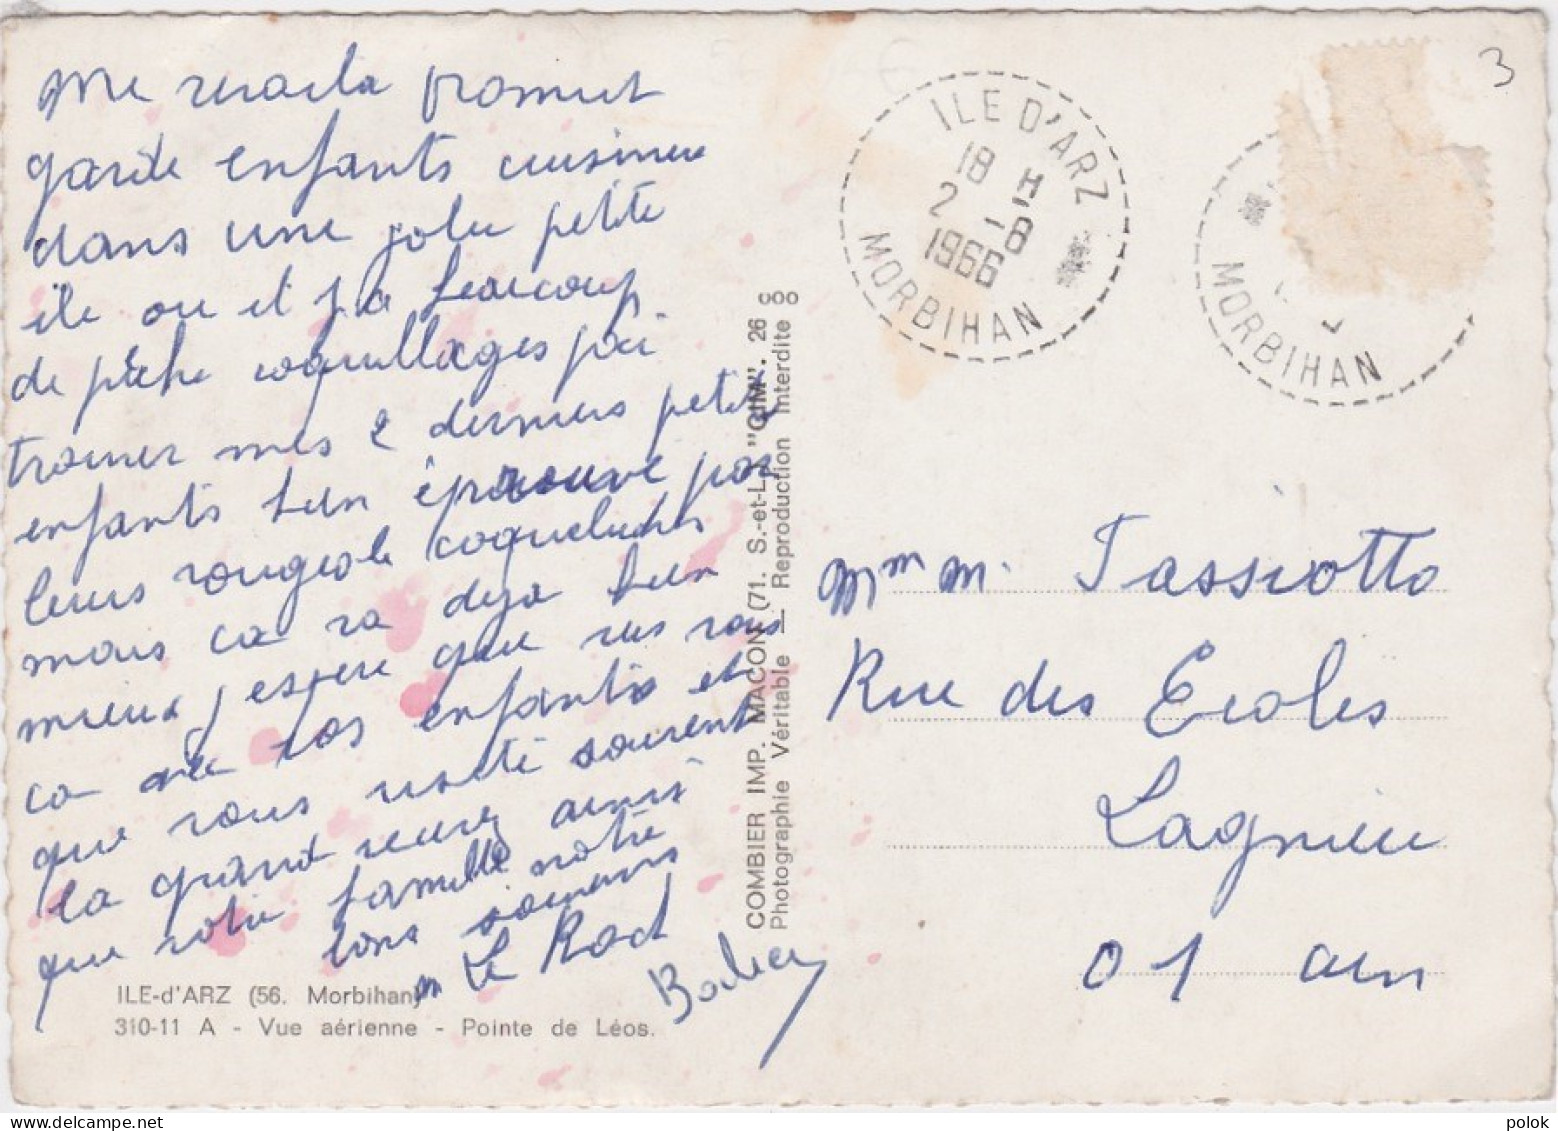 me voila
garde enfants cuisiniere
dans une jolie petite
ile ou il y a beaucoup
de pêche coquillages j'ai
mes 2 derniers petits
enfants bien éprouvé par
leurs rougeole coqueluches
mais ca va deja bien
mieux j espere que
ca vos enfants et
que vous souvent
la grand ainsi
que votre famille notre
bons souvenirs
m Le Roch
ILE-d'ARZ (56. Morbihan)
310-11 A - Vue aérienne - Pointe de Léos.
COMBIER IMP. MACON (71. S.-et-L.) "CIM". 26
Photographie Véritable — Reproduction Interdite
ILE D'ARZ
18 H
2 -8
1966
MORBIHAN
MORBIHAN
3
Mme m. Tassiotto
Rue des Ecoles
Lagnieu
01 ain
polok